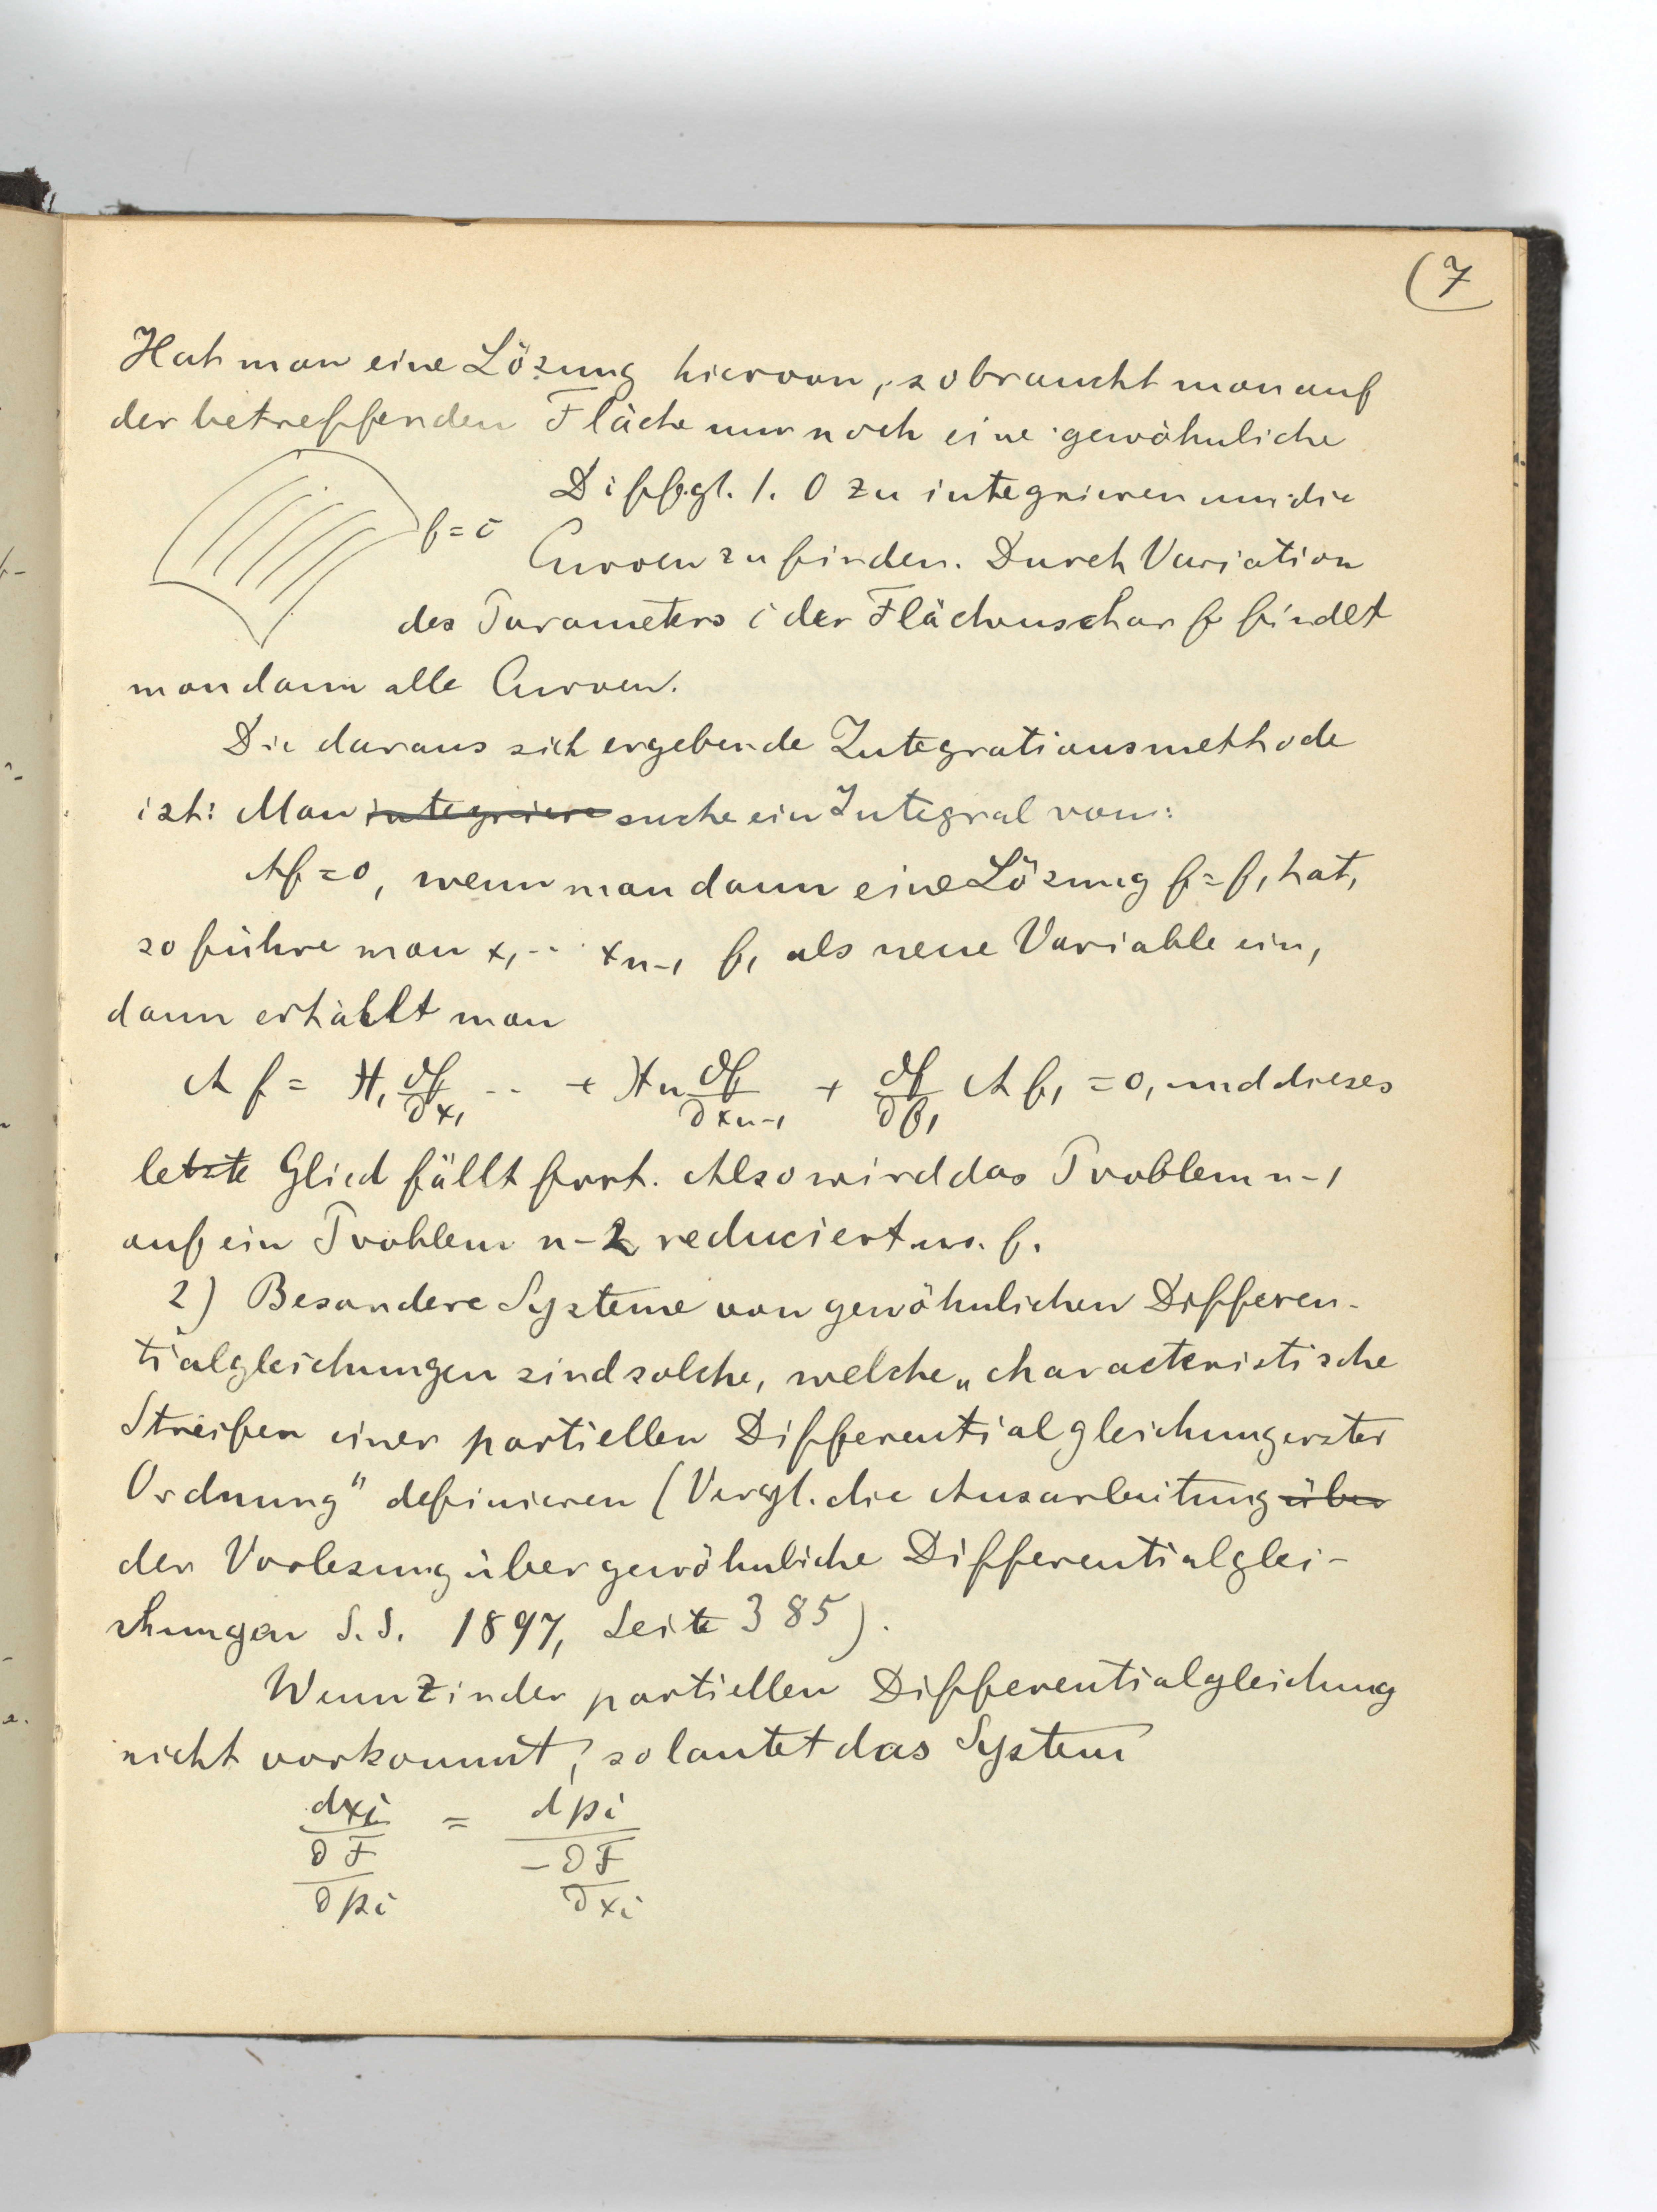 (7
Hat man eine Lösung hiervon, so braucht man auf
der betreffenden Fläche nur noch eine gewöhnliche
Diffgl. 1. O zu integrieren um die
f = c
Curven zu finden. Durch Variation
des Parameters c der Flächenschar f findet
man dann alle Curven.
Die daraus sich ergebende Integrationsmethode
ist: Man integriere suche ein Integral von:
Af = 0, wenn man dann eine Lösung f = f₁ hat,
so führe man x₁ .. xₙ₋₁ f₁ als neue Variable ein,
dann erhält man
A f = X₁ ∂f/∂x₁ .. + Xₙ ∂f/∂xₙ₋₁ + ∂f/∂f₁ A f₁ = 0, und dieses
letzte Glied fällt fort. Also wird das Problem n-1
auf ein Problem n-2 reduciert u.s.f.
2) Besondere Systeme von gewöhnlichen Differen-
tialgleichungen sind solche, welche „characteristische
Streifen einer partiellen Differentialgleichung erster
Ordnung" definieren (Vergl. die Ausarbeitung über
der Vorlesung über gewöhnliche Differentialglei-
chungen S.S. 1897, Seite 385).
Wenn z in der partiellen Differentialgleichung
nicht vorkommt, so lautet das System
dxi/(∂F/∂pi) = dpi/(-∂F/∂xi)